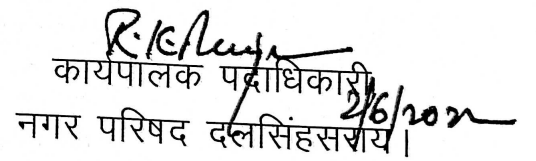 कार्यपालक पदाधिकारी
2/6/2022
नगर परिषद दलसिंहसराय।